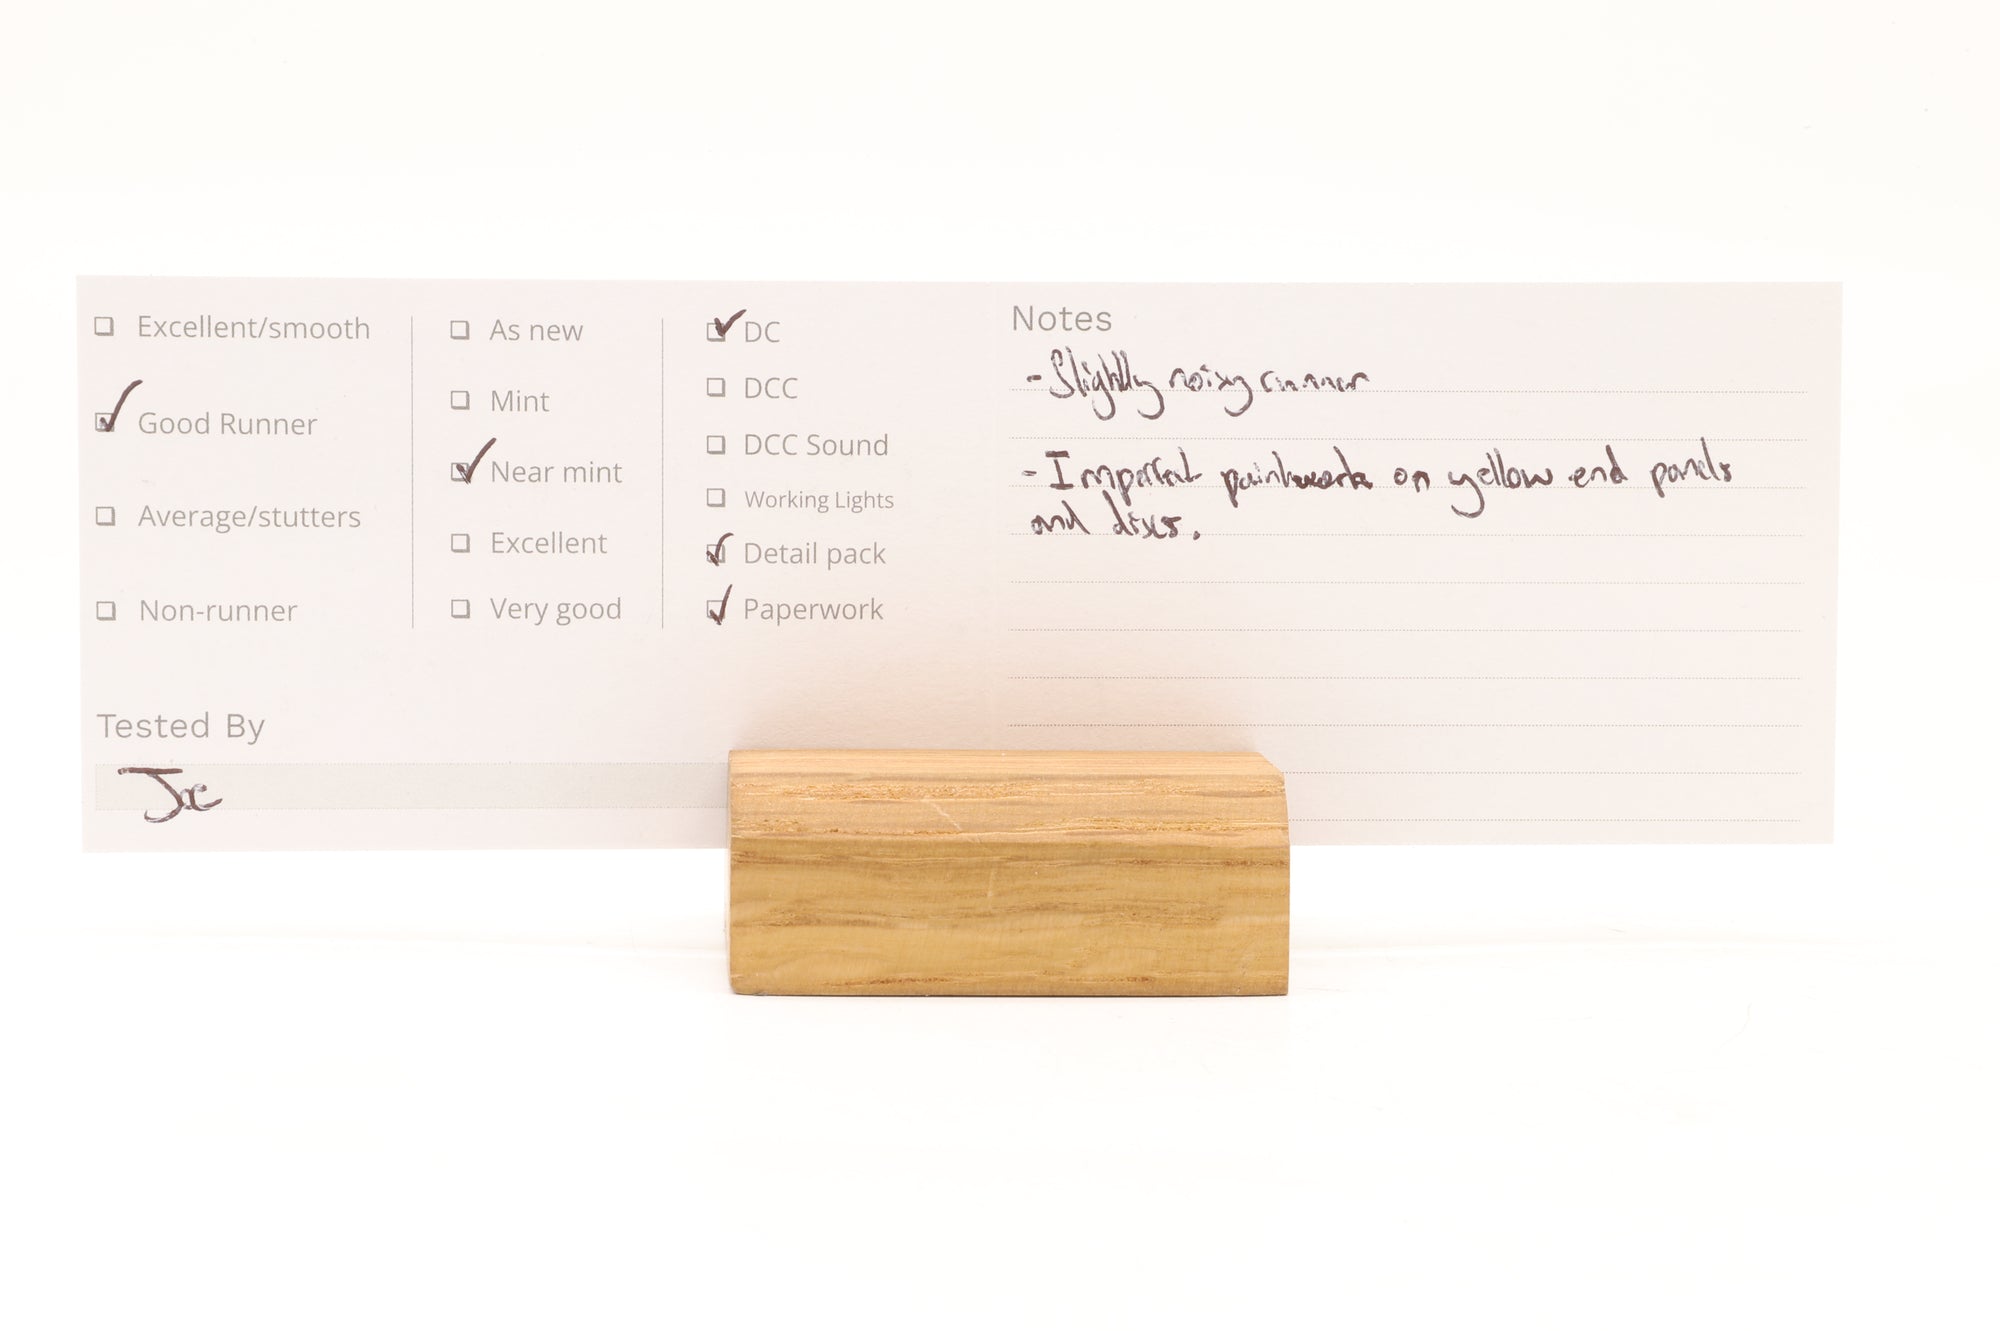 Excellent/smooth
Good Runner
Average/stutters
Non-runner
As new
Mint
Near mint
Excellent
Very good
DC
DCC
DCC Sound
Working Lights
Detail pack
Paperwork
Tested By
Joe
Notes
- Slightly noisy runner
- Imperfect paintwork on yellow end panels
and discs.